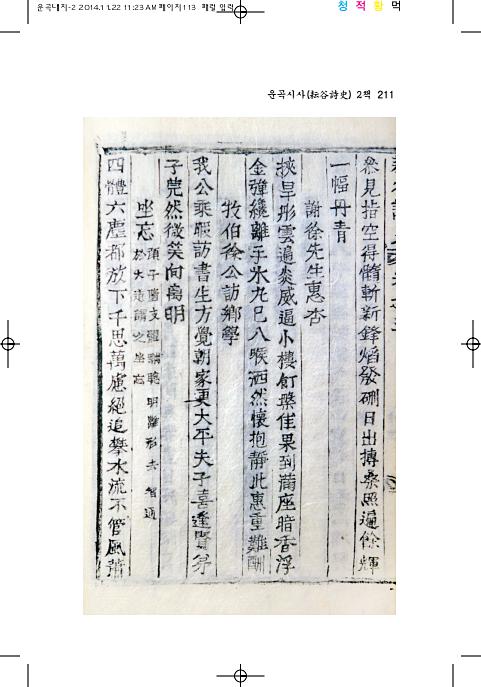 운곡대지-2 2014.11.22 11:23 AM 페이지113
청 적 황 먹
운곡시사(耘谷詩史) 2책 211
叅見指空得髓新 鋒焰發硎日出搏桑照遍餘輝
一幅丹青
謝徐先生惠杏
挾旱彤雲遍炎威逼小樓飣槃佳果到滿座暗香浮
金彈纔離手氷丸已入喉洒然懷抱靜此惠重難酬
牧伯徐公訪鄕學
我公乘暇訪書生方覺朝家更大平夫子喜逢賢弟
子莞然微笑向高明
坐忘
顔子墮支體黜聰明離形去智通
於大道謂之坐忘
四體六塵都放下千思萬慮絕追攀水流不管風